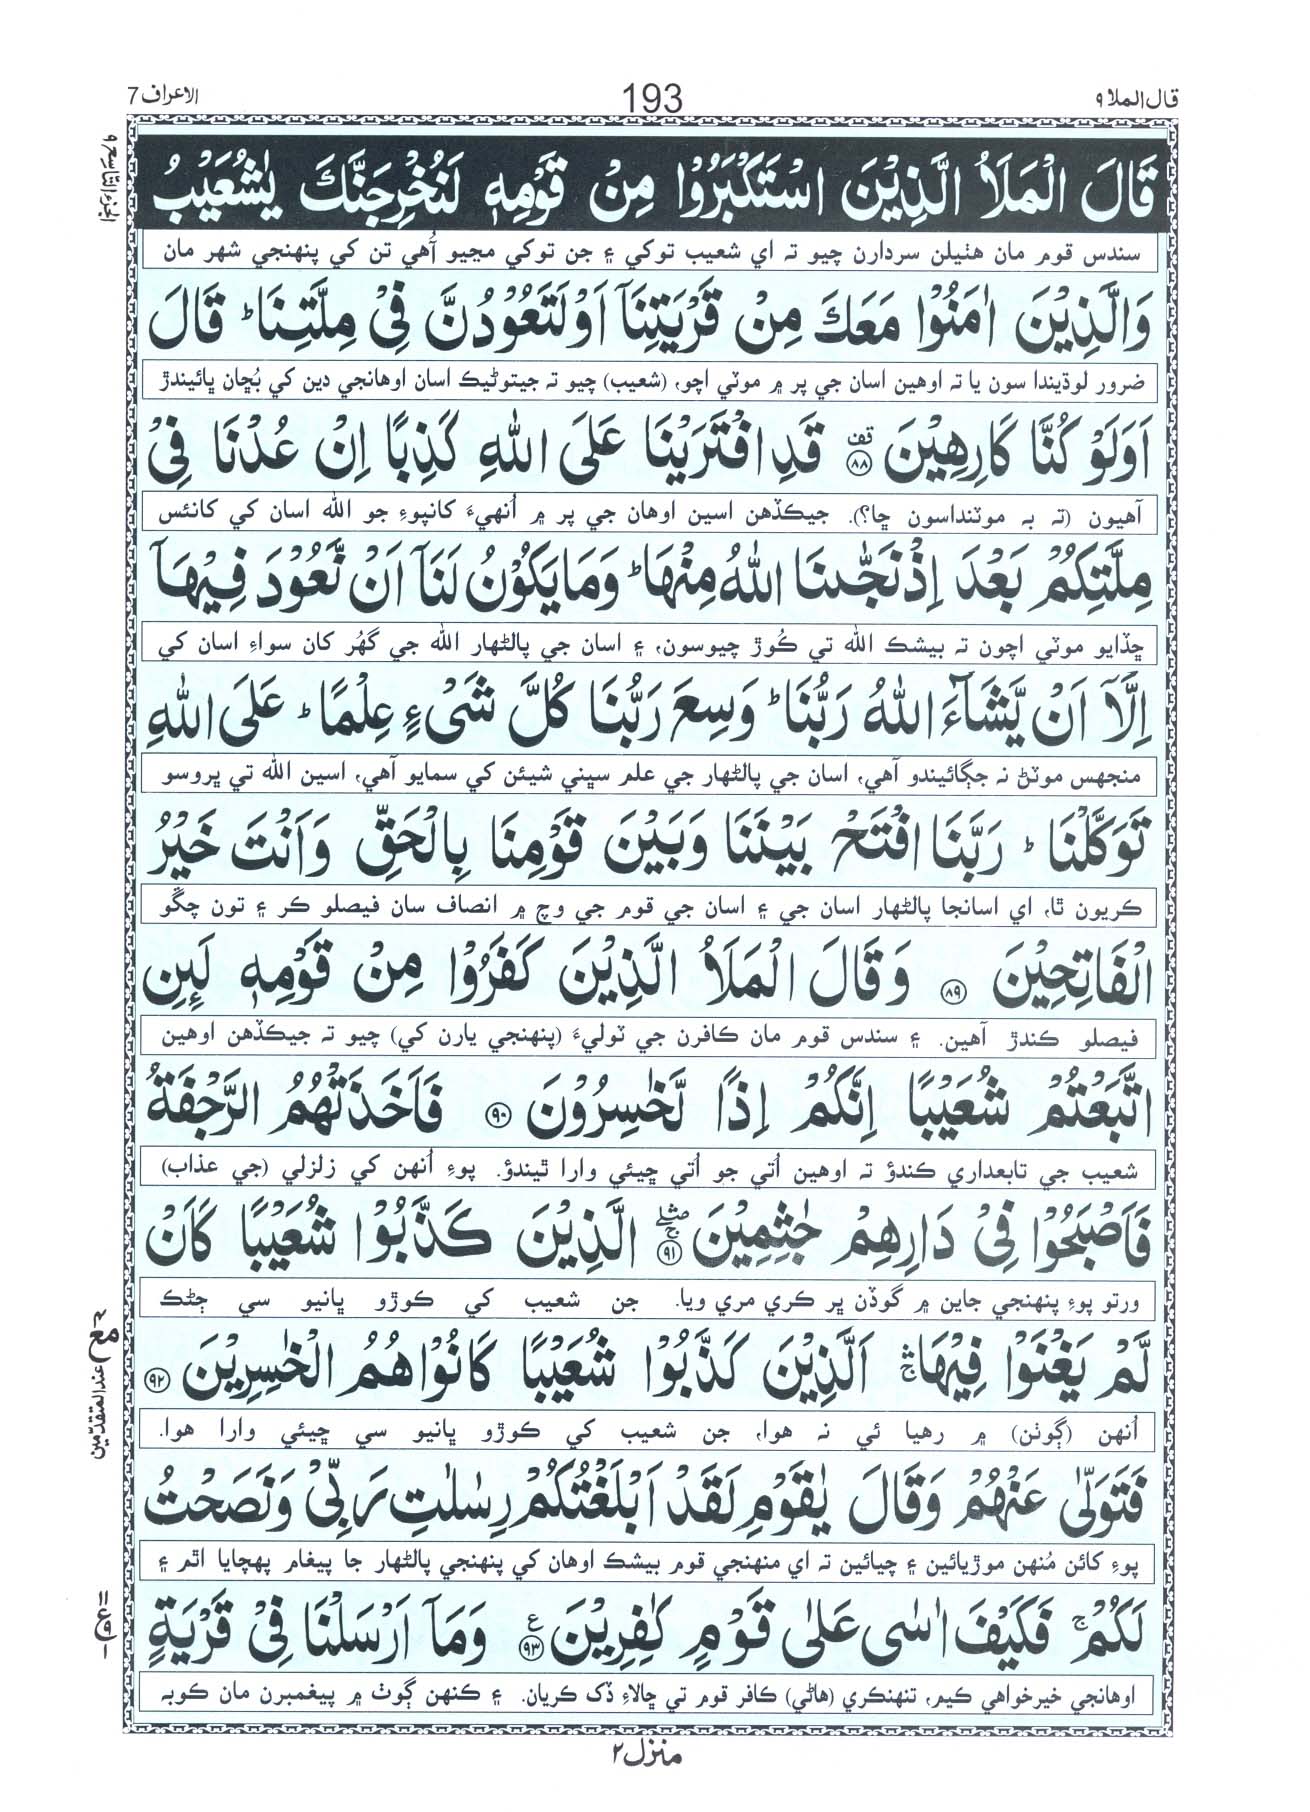 قال الملا ٩
193
الاعراف 7
الجزء التاسع ٩
قَالَ الْمَلَاُ الَّذِيْنَ اسْتَكْبَرُوْا مِنْ قَوْمِهٖ لَنُخْرِجَنَّكَ يٰشُعَيْبُ
سندس قوم مان هٺيلن سردارن چيو تہ اي شعيب توکي ۽ جن توکي مڃيو آهي تن کي پنهنجي شهر مان
وَالَّذِيْنَ اٰمَنُوْا مَعَكَ مِنْ قَرْيَتِنَآ اَوْ لَتَعُوْدُنَّ فِيْ مِلَّتِنَا ؕ قَالَ
ضرور لوڌينداسون يا تہ اوهين اسان جي پر ۾ موٽي اچو، (شعيب) چيو تہ جيتوڻيڪ اسان اوهانجي دين کي بُڇان ڀائيندڙ
اَوَلَوْ كُنَّا كَارِهِيْنَ ۟قف ﴿٨٨﴾ قَدِ افْتَرَيْنَا عَلَى اللّٰهِ كَذِبًا اِنْ عُدْنَا فِيْ
آهيون (تہ بہ موٽنداسون ڇا؟). جيڪڏهن اسين اوهان جي پر ۾ اُنهيءَ کانپوءِ جو الله اسان کي کانئس
مِلَّتِكُمْ بَعْدَ اِذْ نَجّٰىنَا اللّٰهُ مِنْهَا ؕ وَمَا يَكُوْنُ لَنَآ اَنْ نَّعُوْدَ فِيْهَآ
ڇڏايو موٽي اچون تہ بيشڪ الله تي ڪُوڙ چيوسون، ۽ اسان جي پالڻهار الله جي گهُر کان سواءِ اسان کي
اِلَّآ اَنْ يَّشَآءَ اللّٰهُ رَبُّنَا ؕ وَسِعَ رَبُّنَا كُلَّ شَيْءٍ عِلْمًا ؕ عَلَى اللّٰهِ
منجهس موٽڻ نہ جڳائيندو آهي، اسان جي پالڻهار جي علم سڀني شيئن کي سمايو آهي، اسين الله تي ڀروسو
تَوَكَّلْنَا ؕ رَبَّنَا افْتَحْ بَيْنَنَا وَبَيْنَ قَوْمِنَا بِالْحَقِّ وَاَنْتَ خَيْرُ
ڪريون ٿا، اي اسانجا پالڻهار اسان جي ۽ اسان جي قوم جي وچ ۾ انصاف سان فيصلو ڪر ۽ تون چڱو
الْفَاتِحِيْنَ ﴿٨٩﴾ وَقَالَ الْمَلَاُ الَّذِيْنَ كَفَرُوْا مِنْ قَوْمِهٖ لَىِٕنِ
فيصلو ڪندڙ آهين. ۽ سندس قوم مان ڪافرن جي ٽوليءَ (پنهنجي يارن کي) چيو تہ جيڪڏهن اوهين
اتَّبَعْتُمْ شُعَيْبًا اِنَّكُمْ اِذًا لَّخٰسِرُوْنَ ﴿٩٠﴾ فَاَخَذَتْهُمُ الرَّجْفَةُ
شعيب جي تابعداري ڪندؤ تہ اوهين اُتي جو اُتي ڇيئي وارا ٿيندؤ. پوءِ اُنهن کي زلزلي (جي عذاب)
فَاَصْبَحُوْا فِيْ دَارِهِمْ جٰثِمِيْنَ ﴿٩١﴾ الَّذِيْنَ كَذَّبُوْا شُعَيْبًا كَاَنْ
ورتو پوءِ پنهنجي جاين ۾ گوڏن ڀر ڪري مري ويا. جن شعيب کي ڪوڙو ڀانيو سي ڄڻڪ
لَّمْ يَغْنَوْا فِيْهَا ۛۚ اَلَّذِيْنَ كَذَّبُوْا شُعَيْبًا كَانُوْا هُمُ الْخٰسِرِيْنَ ﴿٩٢﴾
مع عند المتقدّمين
اُنهن (ڳوٺن) ۾ رهيا ئي نہ هوا، جن شعيب کي ڪوڙو ڀانيو سي ڇيئي وارا هوا.
فَتَوَلّٰى عَنْهُمْ وَقَالَ يٰقَوْمِ لَقَدْ اَبْلَغْتُكُمْ رِسٰلٰتِ رَبِّيْ وَنَصَحْتُ
پوءِ کائن مُنهن موڙيائين ۽ چيائين تہ اي منهنجي قوم بيشڪ اوهان کي پنهنجي پالڻهار جا پيغام پهچايا اٿم ۽
لَكُمْ ۚ فَكَيْفَ اٰسٰى عَلٰى قَوْمٍ كٰفِرِيْنَ ﴿٩٣﴾ع وَمَآ اَرْسَلْنَا فِيْ قَرْيَةٍ
اوهانجي خيرخواهي ڪيم، تنهنڪري (هاڻي) ڪافر قوم تي ڇالاءِ ڏک ڪريان. ۽ ڪنهن ڳوٺ ۾ پيغمبرن مان ڪوبہ
منزل ٢